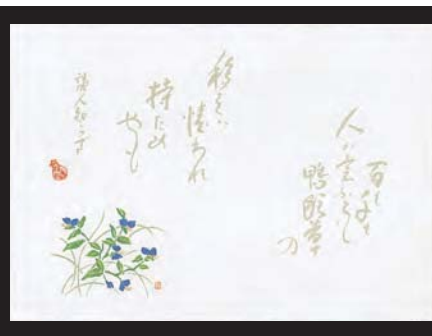 百に千に
人は言ふとも
鴨頭草
の
移ろふ
情われ
持ため
やも
讀人知らず